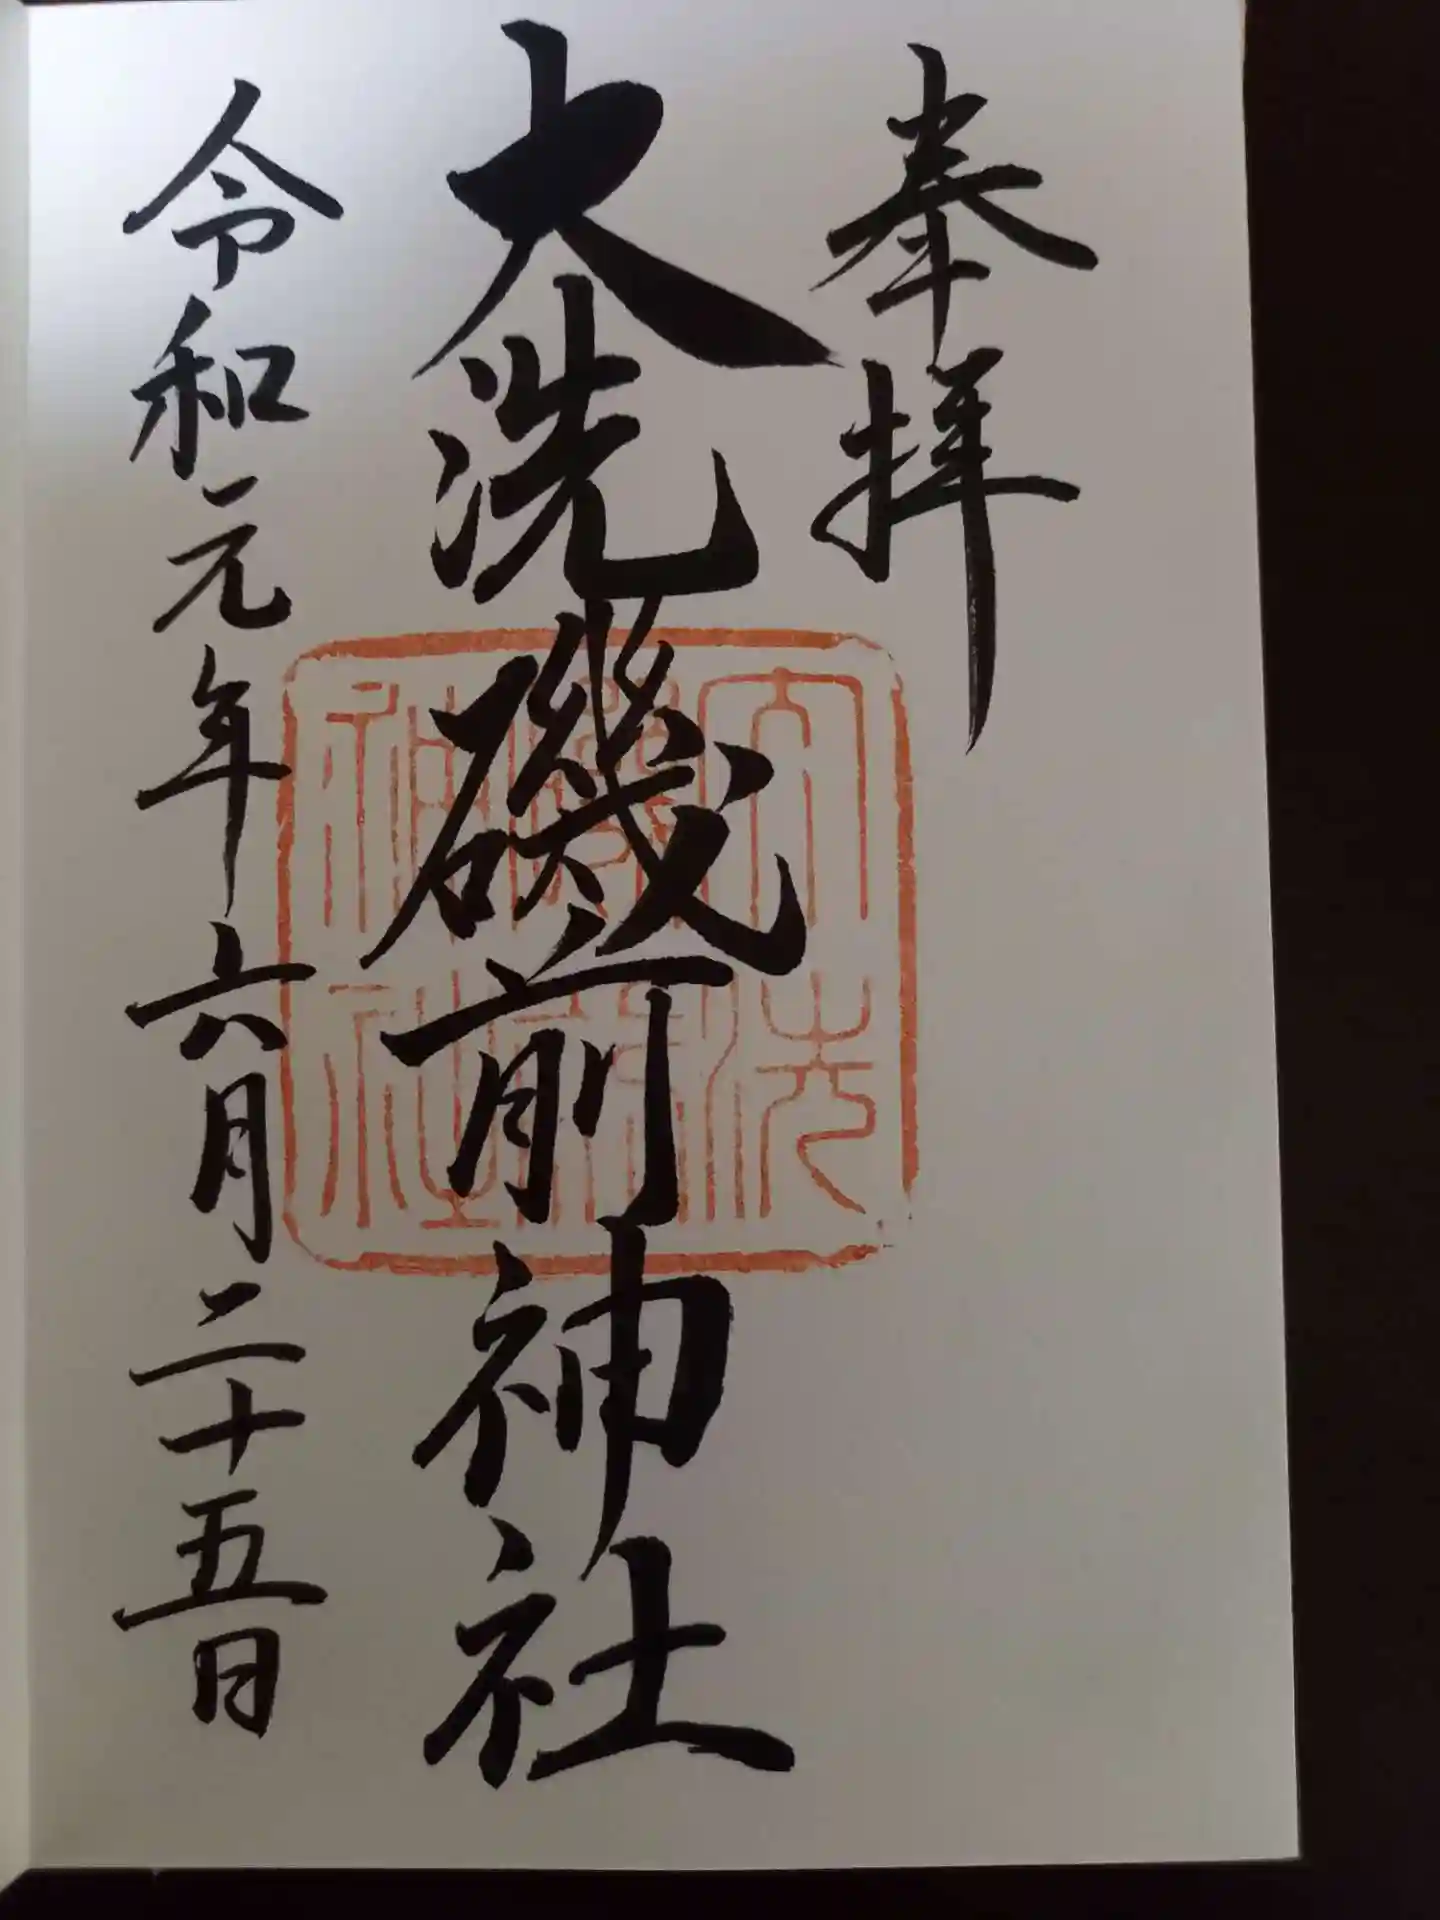 奉拝
大洗磯前神社
大洗
磯前
神社
令和元年六月二十五日